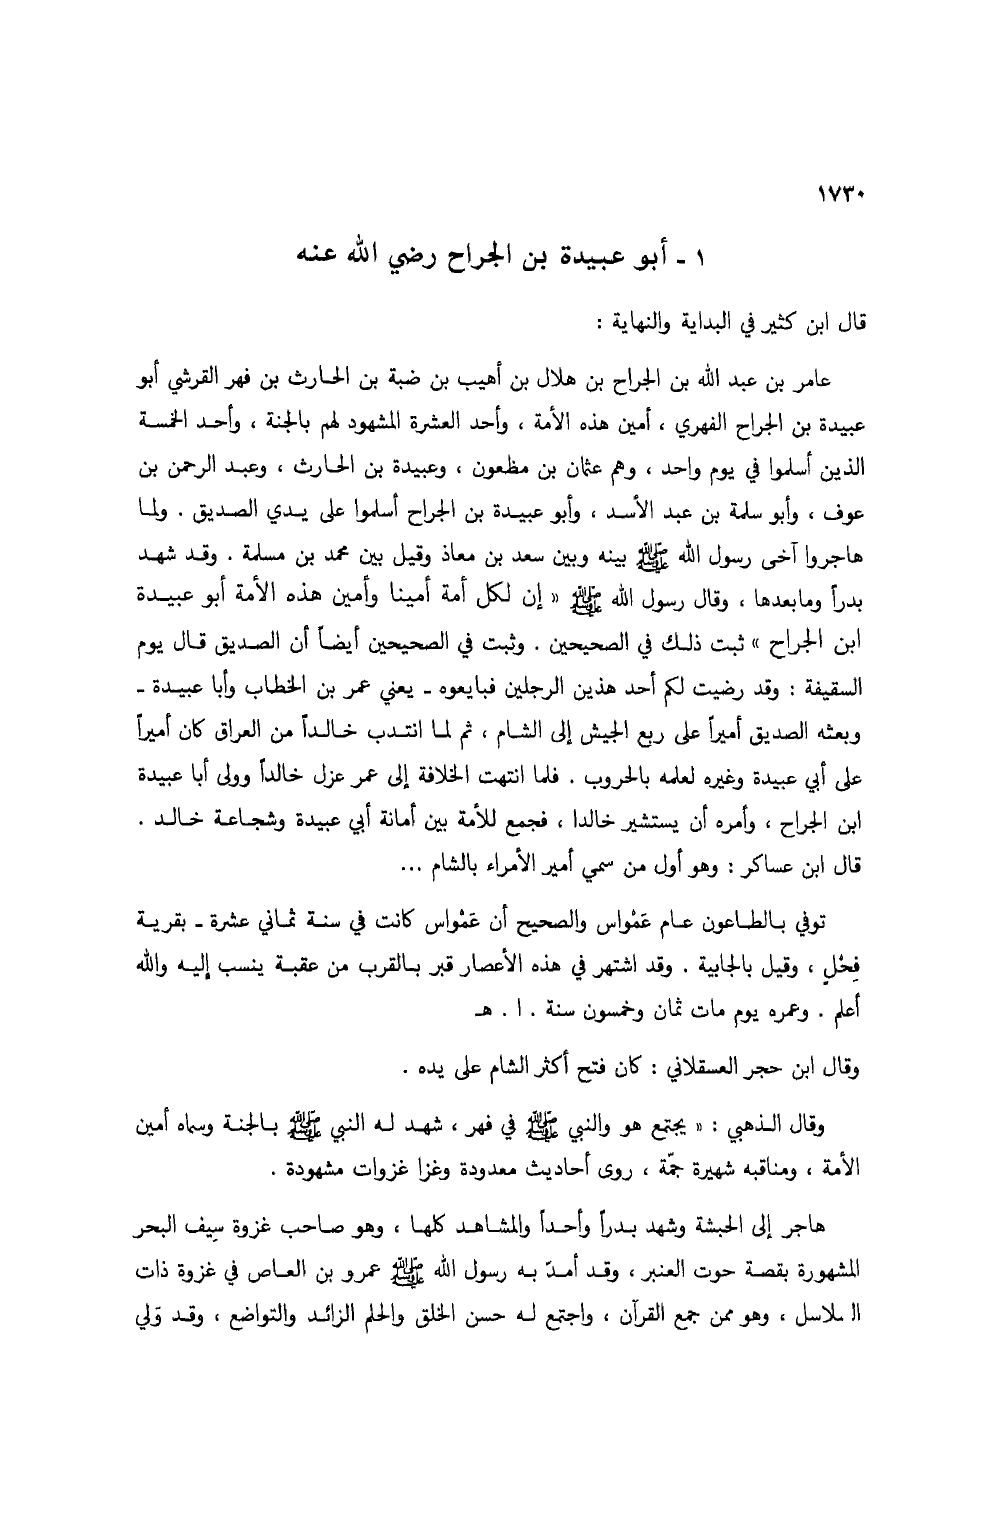 ١٧٣٠
١ ـ أبو عبيدة بن الجراح رضي الله عنه
قال ابن كثير في البداية والنهاية :
عامر بن عبد الله بن الجراح بن هلال بن أهيب بن ضبة بن الحارث بن فهر القرشي أبو
عبيدة بن الجراح الفهري ، أمين هذه الأمة ، وأحد العشرة المشهود لهم بالجنة ، وأحد الخمسة
الذين أسلموا في يوم واحد ، وهم عثمان بن مظعون ، وعبيدة بن الحارث ، وعبد الرحمن بن
عوف ، وأبو سلمة بن عبد الأسد ، وأبو عبيدة بن الجراح أسلموا على يدي الصديق . ولما
هاجروا آخى رسول الله ﷺ بينه وبين سعد بن معاذ وقيل بين محمد بن مسلمة . وقد شهد
بدراً ومابعدها ، وقال رسول الله ﷺ « إن لكل أمة أمينا وأمين هذه الأمة أبو عبيدة
ابن الجراح » ثبت ذلك في الصحيحين . وثبت في الصحيحين أيضاً أن الصديق قال يوم
السقيفة : وقد رضيت لكم أحد هذين الرجلين فبايعوه ـ يعني عمر بن الخطاب وأبا عبيدة ـ
وبعثه الصديق أميراً على ربع الجيش إلى الشام ، ثم لما انتدب خالداً من العراق كان أميراً
على أبي عبيدة وغيره لعلمه بالحروب . فلما انتهت الخلافة إلى عمر عزل خالداً وولى أبا عبيدة
ابن الجراح ، وأمره أن يستشير خالدا ، فجمع للأمة بين أمانة أبي عبيدة وشجاعة خالد .
قال ابن عساكر : وهو أول من سمي أمير الأمراء بالشام ...
توفي بالطاعون عام عَمْواس والصحيح أن عَمْواس كانت في سنة ثماني عشرة ـ بقرية
فِحْلٍ ، وقيل بالجابية . وقد اشتهر في هذه الأعصار قبر بالقرب من عقبة ينسب إليه والله
أعلم . وعمره يوم مات ثمان وخمسون سنة . ا . هـ
وقال ابن حجر العسقلاني : كان فتح أكثر الشام على يده .
وقال الذهبي : « يجتمع هو والنبي ﷺ في فهر ، شهد له النبي ﷺ بالجنة وسماه أمين
الأمة ، ومناقبه شهيرة جمّة ، روى أحاديث معدودة وغزا غزوات مشهودة .
هاجر إلى الحبشة وشهد بدراً وأحداً والمشاهد كلها ، وهو صاحب غزوة سِيف البحر
المشهورة بقصة حوت العنبر ، وقد أمدّ به رسول الله ﷺ عمرو بن العاص في غزوة ذات
السلاسل ، وهو ممن جمع القرآن ، واجتمع له حسن الخلق والحلم الزائد والتواضع ، وقد وَلي